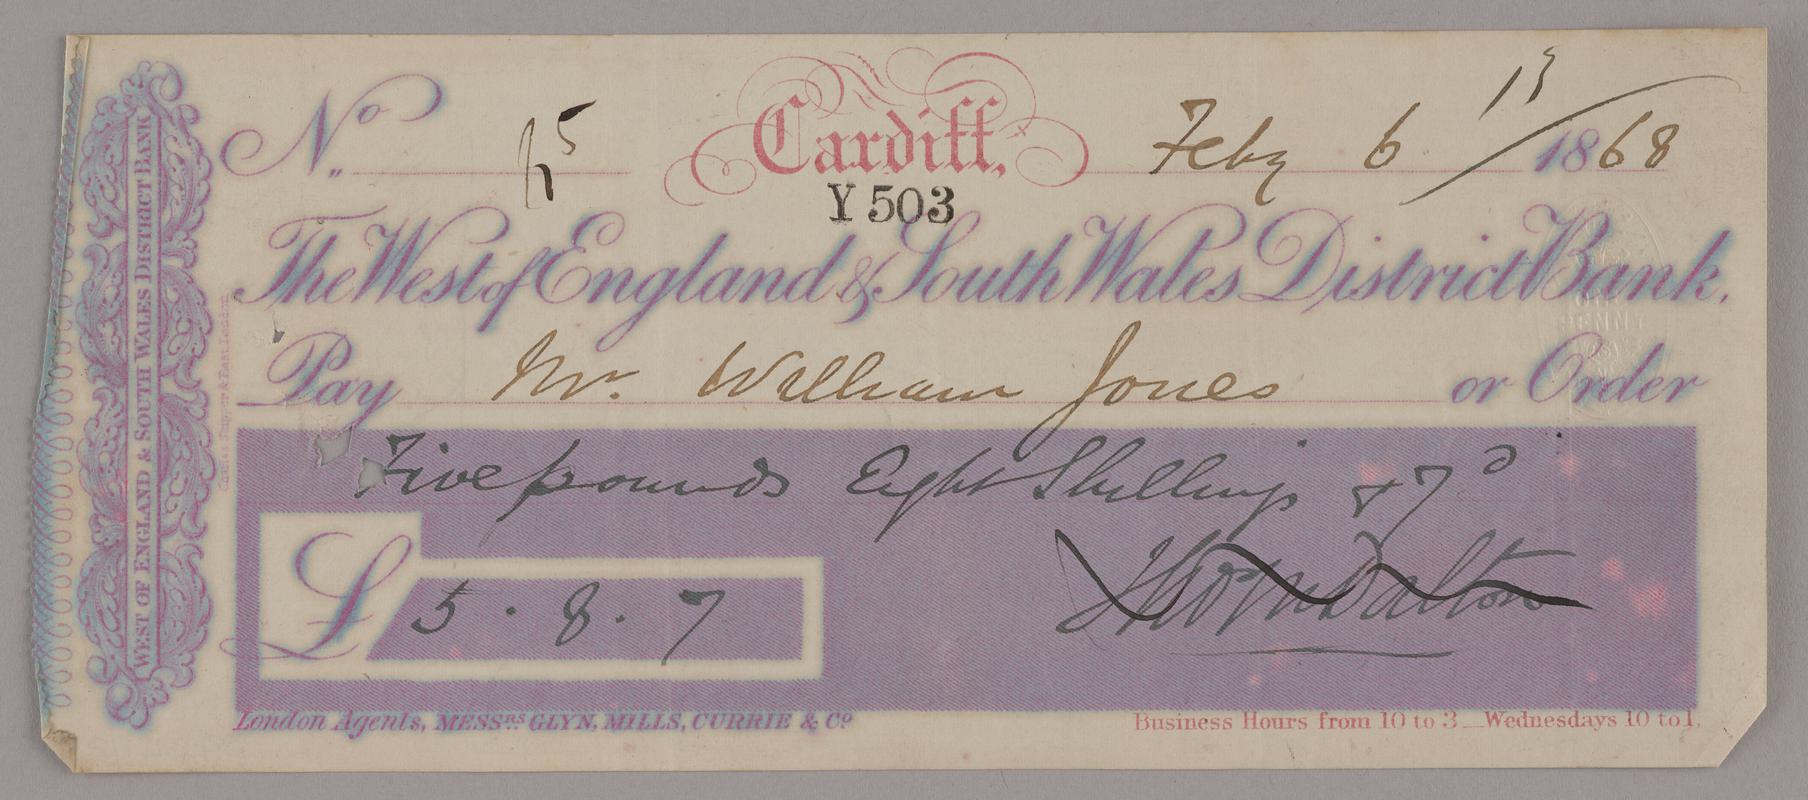 WEST OF ENGLAND & SOUTH WALES DISTRICT BANK
No
Cardiff, Feby 6 1868
13
Y 503
The West of England & South Wales District Bank.
Pay Mr. William Jones or Order
Five pounds Eight Shillings & 7d
£ 5 . 8 . 7
Dalton
London Agents, MESSRS GLYN, MILLS, CURRIE & Co
Business Hours from 10 to 3 _ Wednesdays 10 to 1.
PENNY